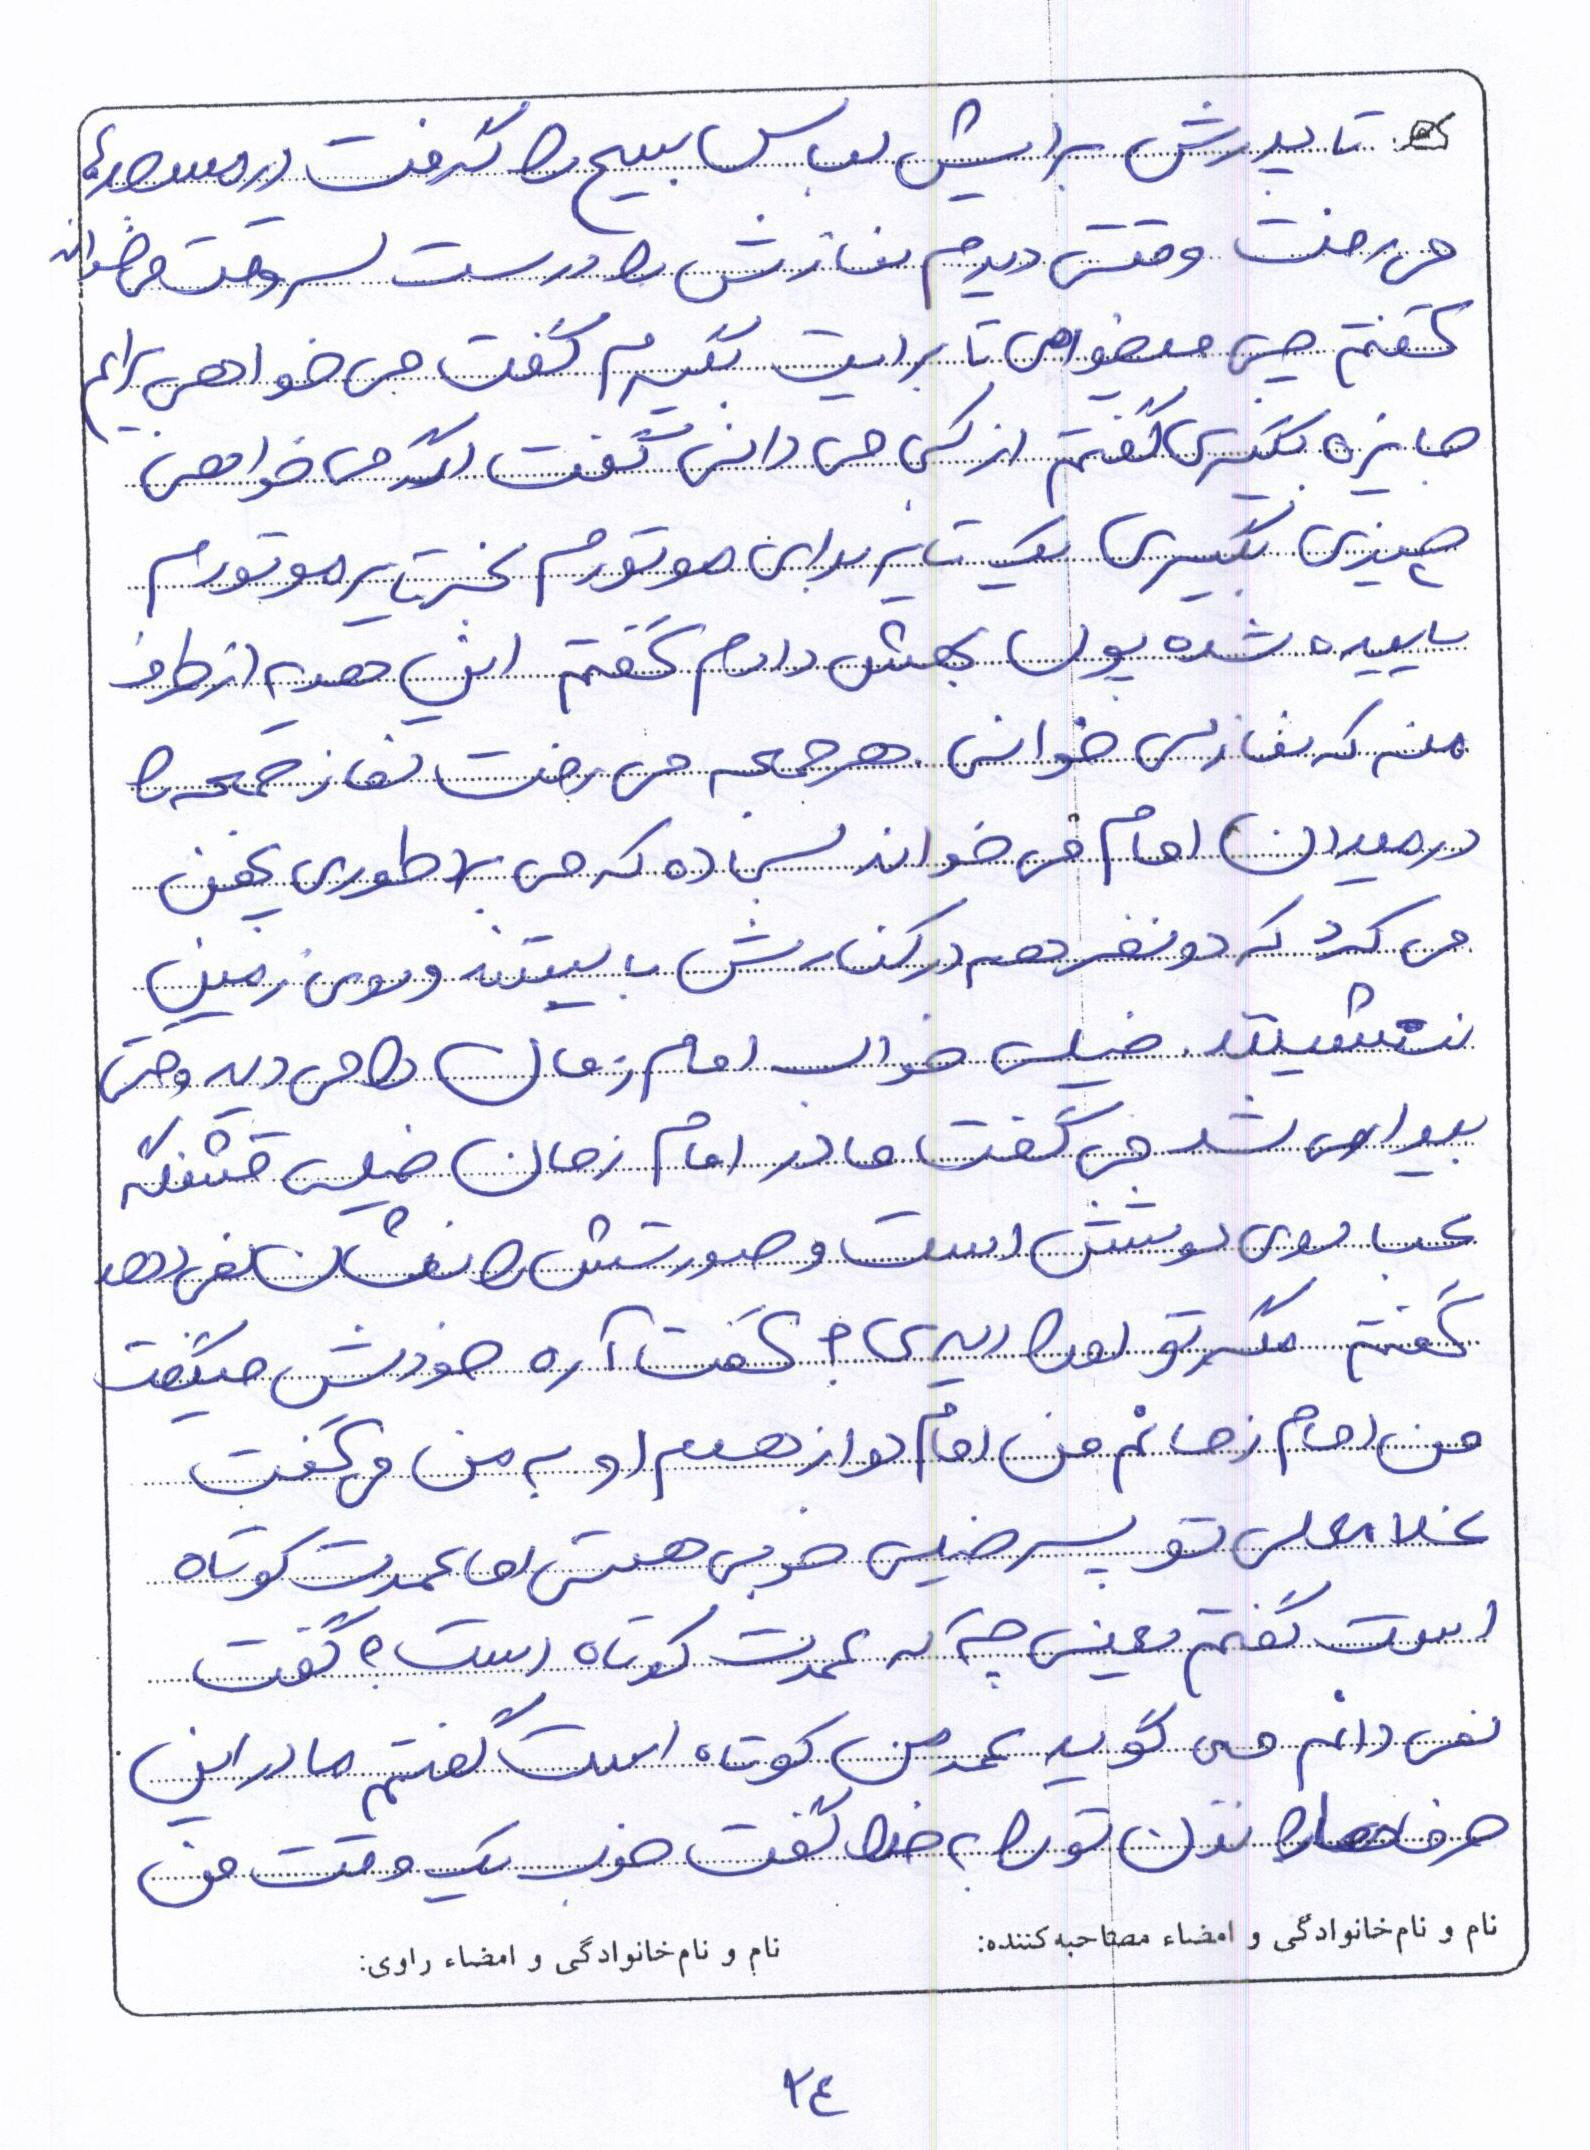 تا پدرش برایش لباس بسیج را گرفت در مسجدها
می رفت وقتی دیدم نمازش را درست سر وقت می خواند
گفتم چی میخواهی تا برایت بگیرم گفت می خواهی برایم
جایزه بگیری گفتم از کی می دانی گفت اگر می خواهی
چیزی بگیری یک تایر برای موتورم بخر تایر موتورم
ساییده شده پول بهش دادم گفتم این هدیه از طرف
منه که نماز می خوانی. هر جمعه می رفت نماز جمعه را
در میدان امام می خواند سجاده که می برد طوری پهن
می کرد که دو نفر هم در کنارش بایستند و روی زمین
ننشینند. خیلی خواب امام زمان را می دید وقتی
بیدار می شد می گفت مادر امام زمان خیلی قشنگه
عبا روی دوشش است و صورتش را نشان نمی دهد
گفتم مگر تو او را دیدی؟ گفت آره خودش میگفت
من امام زمانم من امام دوازدهم او به من می گفت
غلامعلی تو پسر خیلی خوبی هستی اما عمرت کوتاه
است گفتم یعنی چی که عمرت کوتاه است؟ گفت
نمی دانم می گوید عمر من کوتاه است گفتم مادر این
حرفها را نزن تو را به خدا گفت خوب یک وقت من
نام و نام خانوادگی و امضاء مصاحبه کننده:
نام و نام خانوادگی و امضاء راوی:
۲٤